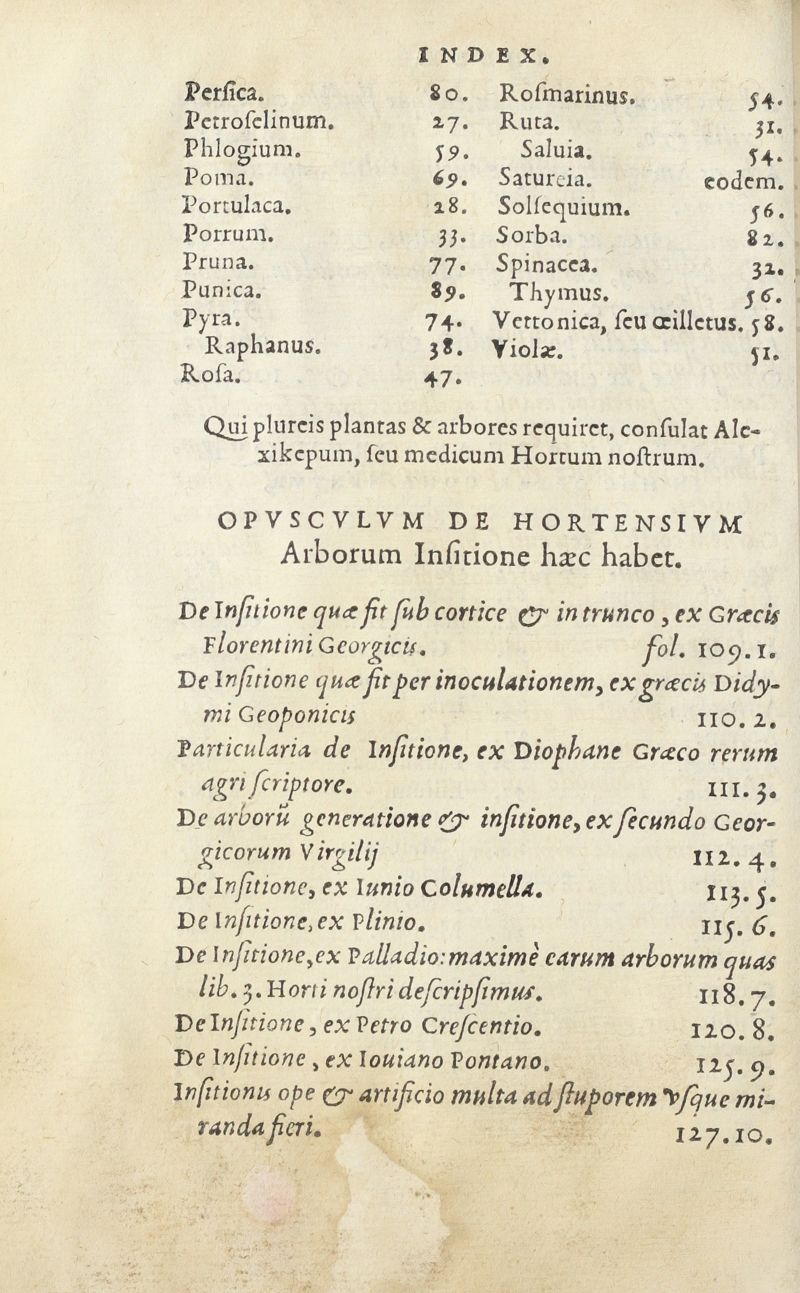 INDEX.
Perſica. 80.
Petroſelinum. 27.
Phlogium. 59.
Poma. 69.
Portulaca. 28.
Porrum. 33.
Pruna. 77.
Punica. 89.
Pyra. 74.
Raphanus. 38.
Roſa. 47.
Roſmarinus. 54.
Ruta. 31.
Saluia. 54.
Satureia. eodem.
Solſequium. 56.
Sorba. 82.
Spinacea. 32.
Thymus. 56.
Vettonica, ſeu œilletus. 58.
Violæ. 51.
Qui plureis plantas & arbores requiret, conſulat Ale-
xikepum, ſeu medicum Hortum noſtrum.
OPVSCVLVM DE HORTENSIVM
Arborum Inſitione hæc habet.
De Inſitione quæ fit ſub cortice & in trunco, ex Græcis
Florentini Georgicis. fol. 109.1.
De Inſitione quæ fit per inoculationem, ex græcis Didy-
mi Geoponicis 110. 2.
Particularia de Inſitione, ex Diophane Græco rerum
agri ſcriptore. 111. 3.
De arborū generatione & inſitione, ex ſecundo Geor-
gicorum Virgilij 112. 4.
De Inſitione, ex Iunio Columella. 113. 5.
De Inſitione, ex Plinio. 115. 6.
De Inſitione, ex Palladio: maximè earum arborum quas
lib. 3. Horti noſtri deſcripſimus. 118. 7.
De Inſitione, ex Petro Creſcentio. 120. 8.
De Inſitione, ex Iouiano Pontano. 125. 9.
Inſitionis ope & artificio multa ad ſtuporem vſque mi-
randa fieri. 127.10.